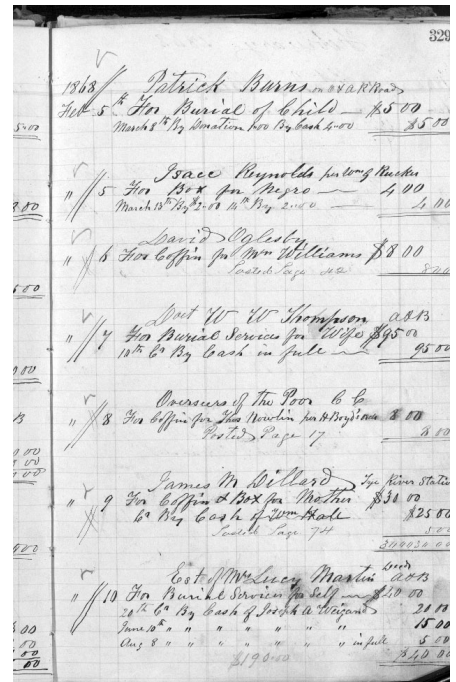 329
1868 Patrick Burns on O & A R Road
Feb 5th For Burial of Child $5 00
March 8th By Donation 1.00 By Cash 4.00 $5 00
Isaac Reynolds per Wm Rucker
" 5 For Box for Negro 4 00
March 13th By $2.00 14th By 2.00 4 00
David Oglesby
" 6 For Coffin for Mrs Williams $8 00
Posted Page 42 8 00
W W Thompson O & B
" 7 For Burial Services for Wife $95 00
10th Cr By Cash in full 95 00
Overseers of the Poor C C
" 8 For Coffin for Nowlin per H Boyd 8 00
Posted Page 17 8 00
James M Dillard Tye River Station
" 9 For Coffin & Box for Mother $30 00
Cr By Cash of Wm Hale $25 00
Posted Page 74 5 00
30 00
Est of Mrs Lucy Martin
" 10 For Burial Services for Self $40 00
20th Cr By Cash of Joseph A Weigand 20 00
June 10th " " " " " " 15 00
Aug 8 " " " " " " " in full 5 00
$40 00
$190.00